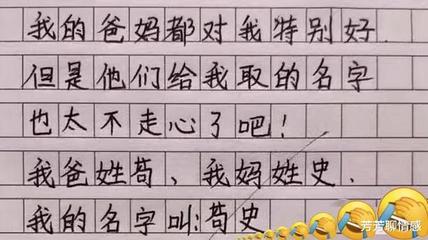 我的爸妈都对我特别好.
但是他们给我取的名字
也太不走心了吧!
我爸姓苟、我妈姓史.
我的名字叫:苟史
芳芳聊情感